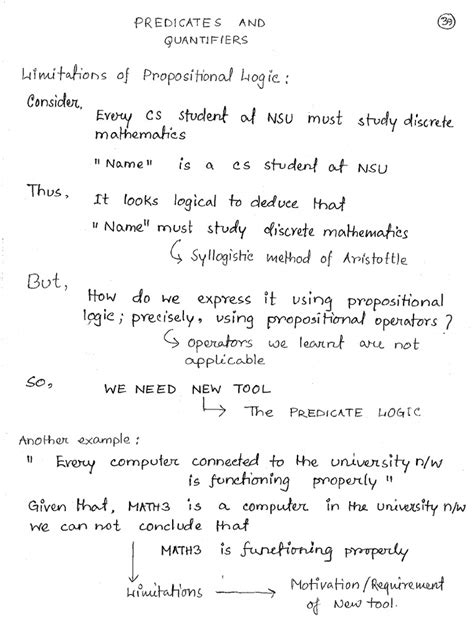 PREDICATES AND
39
QUANTIFIERS
Limitations of Propositional Logic:
Consider,
Every CS student at NSU must study discrete
mathematics
"Name" is a CS student at NSU
Thus, It looks logical to deduce that
"Name" must study discrete mathematics
Syllogistic method of Aristottle
But,
How do we express it using propositional
logic; precisely, using propositional operators?
Operators we learnt are not
applicable
So,
WE NEED NEW TOOL
The PREDICATE LOGIC
Another example:
" Every computer connected to the university n/w
is functioning properly "
Given that, MATH3 is a computer in the university n/w
we can not conclude that
MATH3 is functioning properly
Limitations
Motivation/Requirement
of New tool.